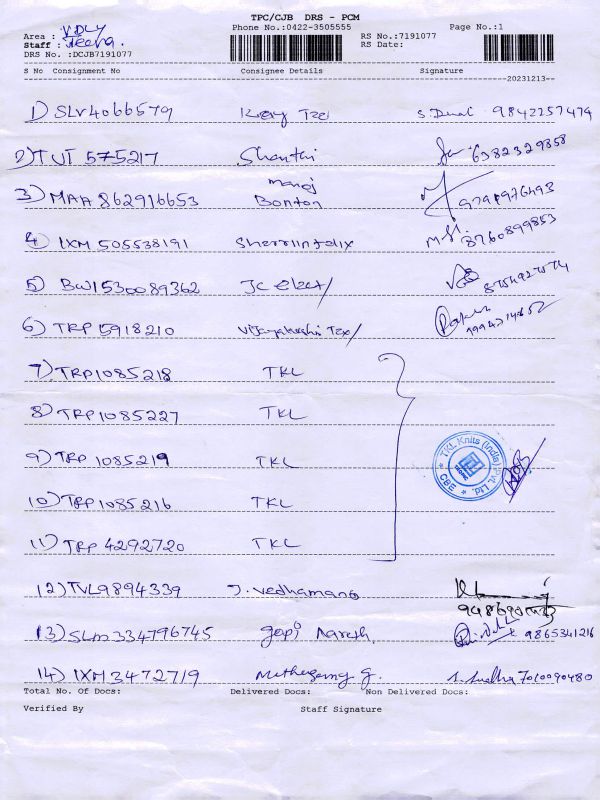 TPC/CJB DRS - PCM
Phone No.:0422-3505555
Page No.:1
Area : VDLY
RS No.:7191077
Staff :
RS Date:
DRS No. :DCJB7191077
S No Consignment No Consignee Details Signature
20231213
1) SLV4066579 S. 9842257479
2) TUT 575217 Shanthi 6382329858
3) MAA 862916653 manoj Bonton
4) IXM 505538191 8760899853
5) BWI530089362 JC elect/
6) TRP 5918210 Tex/
7) TRP1085218 TKL
8) TRP1085227 TKL
9) TRP 1085219 TKL
TKL Knits (India) Pvt. Ltd. CBE
10) TRP 1085216 TKL
11) TRP 4292720 TKL
12) TVL9894339 J. Vedhamano
13) SLM 334796745 Gopi 9865341216
14) IXM3472719 G. S. Sudha 7010090480
Total No. Of Docs: Delivered Docs: Non Delivered Docs:
Verified By Staff Signature